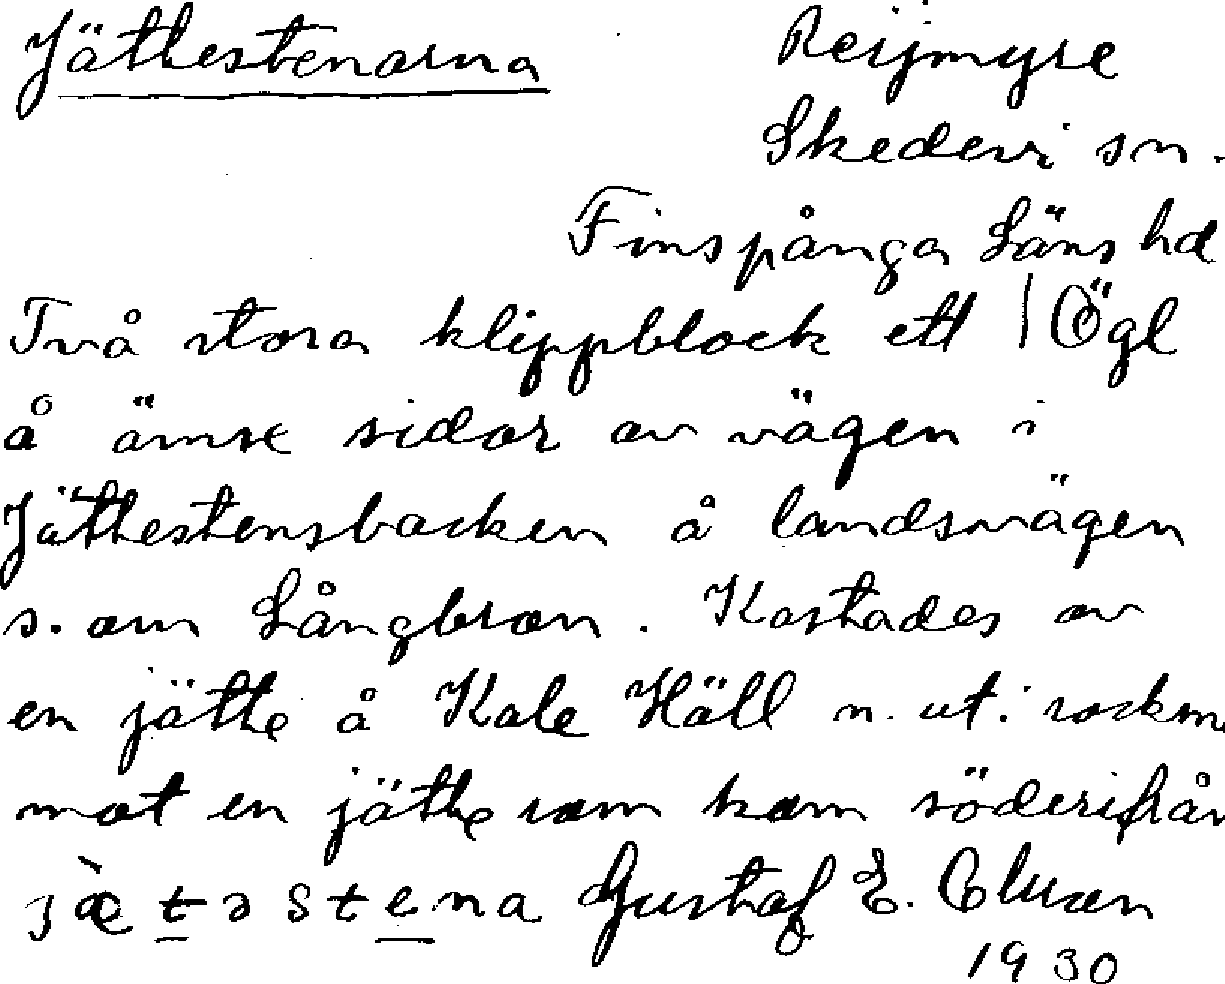 Jättestenarna
Reijmyre
Skedevi sn.
Finspånga Läns hd
Två stora klippblock ett | Ögl
å ömse sidor av vägen i
Jättestensbacken å landsvägen
s. om Långbron. Kastades av
en jätte å Kale Häll n. ut i
mot en jätte som kom söderifrån
Gustaf E.
1930